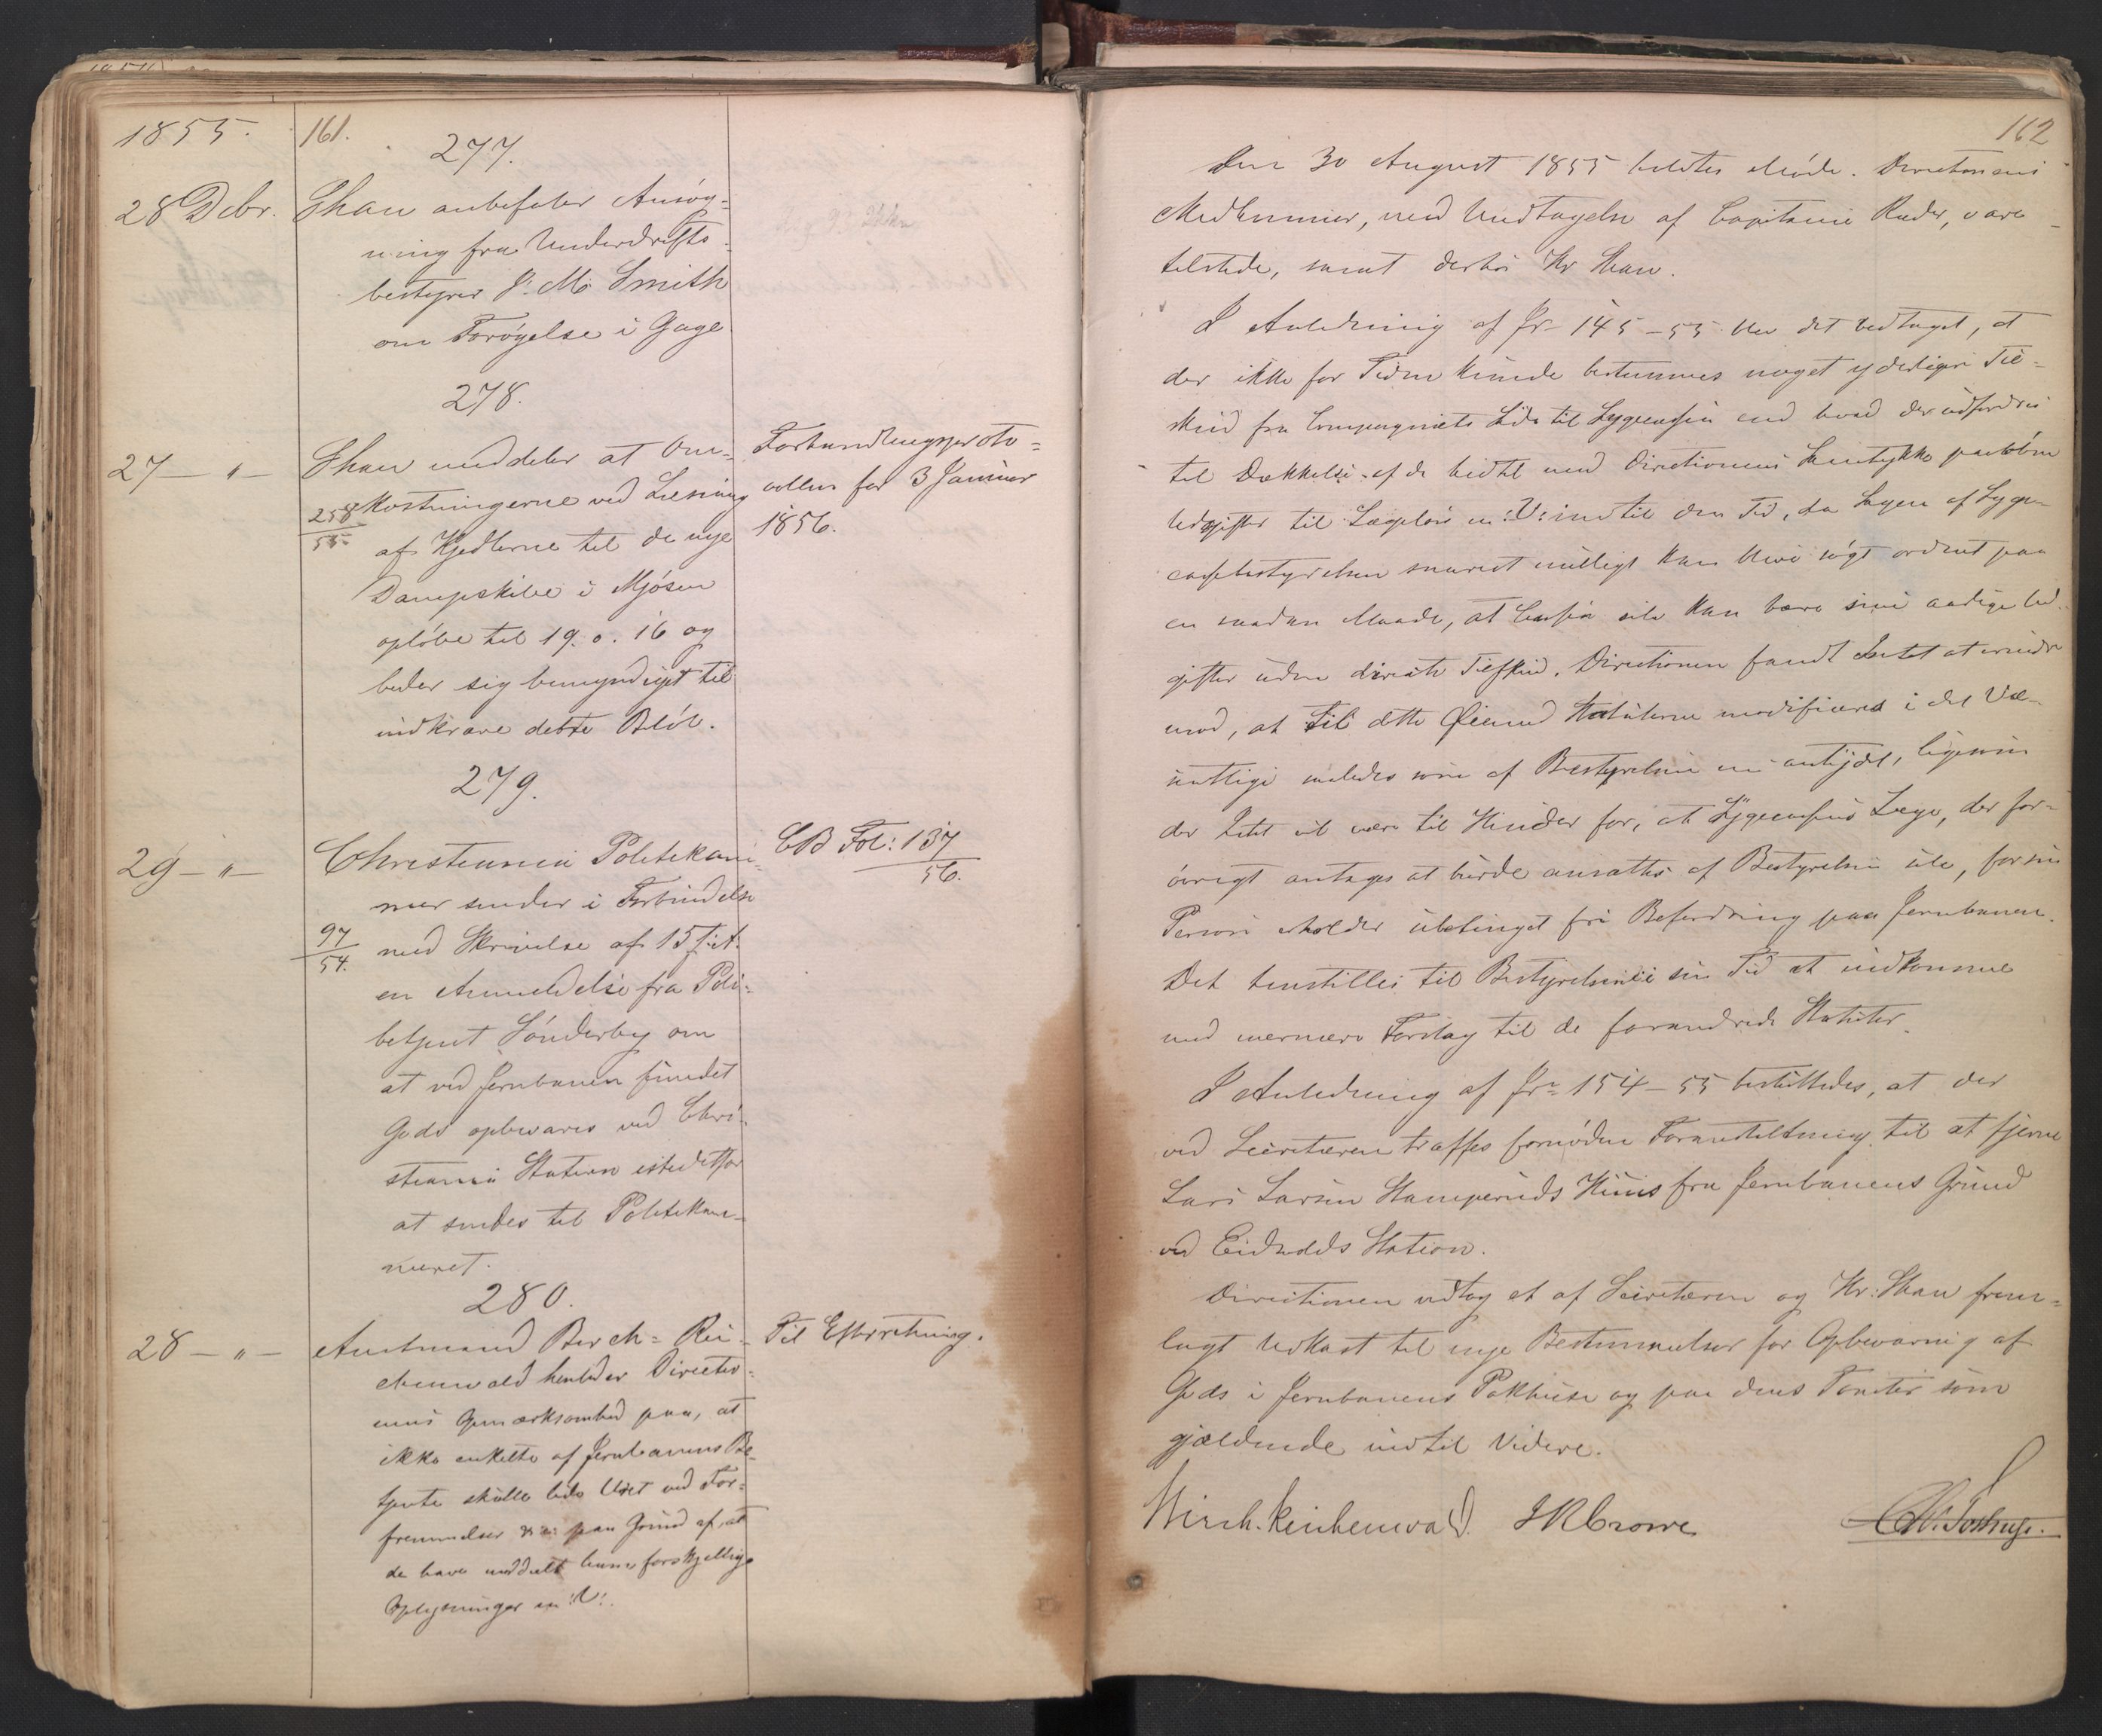 1855.
161.
277.
28 Debr.
Shau anbefaler Ansøg-
ning fra Underdrifts-
bestyrer J. M. Smith
om Forøgelse i Gage
278.
27 — " —
Shau meddeler at Om-
258
55
kostningerne ved Losning
af Kjedlerne til de nye
Dampskibe i Mjøsen
opløbe til 19. 0. 16 og
beder sig bemyndiget til
indkræve dette Beløb.
Forhandlingsproto-
collen for 3 Januar
1856.
279.
29 — " —
Christiania Politikam-
mer sender i Forbindelse
97
54.
med Skrivelse af 15 f: A:
en Anmeldelse fra Poli-
betjent Sønderby om
at ved Jernbanen fundet
Gods opbevares ved Chri-
stiania Station istedetfor
at sendes til Politikam-
meret.
CB Fol: 137
56.
280.
28 — " —
Amtmand Birch-Rei-
chenwald henleder Directio-
nens Opmærksomhed paa, at
ikke enkelte af Jernbanens Be-
tjente skulle lide Uret ved For-
fremmelser paa Grund af, at
de have meddelt ham forskjellige
Oplysninger m: V:.
Til Efterretning.
162
Den 30 August 1855 holdtes Møde. Directionens
Medlemmer, med Undtagelse af Capitaine Ræder, vare
tilstede, samt derhos Hr Shau.
I Anledning af Jr 145-55 blev det vedtaget, at
der ikke for Tiden kunde bestemmes noget yderligere Til-
skud fra Compagniets Side til Sygecassen end hvad der udfordres
til Dækkelse af de hidtil med Directionens Samtykke paaløbne
Udgifter til Lægeløn m: V: indtil den Tid, da Sagen af Syge-
cassebestyrelsen snarest muligt kan blive søgt ordnet paa
en saadan Maade, at Cassen selv kan bære sine aarlige Ud-
gifter uden directe Tilskud. Directionen fandt Intet at erindre
mod, at til dette Øiemed Statuterne modificeres i det Væ-
sentlige saaledes som af Bestyrelsen er antydet, ligesom
der Intet vil være til Hinder for, at Sygecassens Læge, der for-
øvrigt antages at burde ansættes af Bestyrelsen selv, for sin
Person erholder ubetinget fri Befordring paa Jernbanen.
Det henstilles til Bestyrelsen i sin Tid at indkomme
med nærmere Forslag til de forandrede Statuter.
I Anledning af Jr: 154-55 besluttedes, at der
ved Secretæren træffes fornøden Foranstaltning til at fjerne
Lars Larsen Stamperuds Huus fra Jernbanens Grund
ved Eidsvolds Station.
Directionen vedtog et af Secretæren og Hr: Shau frem-
lagt Udkast til nye Bestemmelser for Opbevaring af
Gods i Jernbanens Pakhuse og paa dens Tomter som
gjældende indtil Videre.
Birch-Reichenwald. JRCrowe